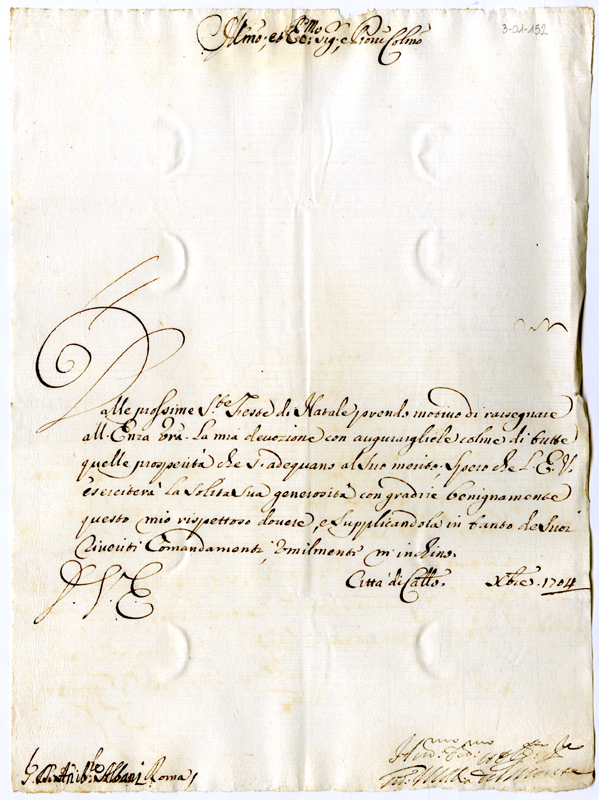 Illmo, et Eccmo Sig.r, e Pron Colmo
3-01-152
Dalle prossime S.te Feste di Natale prendo motivo di rassegnare
all. Enza Vra. La mia devozione con augurargliele colme di tutte
quelle prosperità che s. adequano al suo merito. Spero che L. E. V.
eserciterà La solita sua generosità con gradire benignamente
questo mio rispettoso dovere, e supplicandola in tanto de Suoi
riveriti Comandamenti, Umilmente m'inchino.
D. V. E.
Città di Castto. Xbre. 1704
Albani Roma